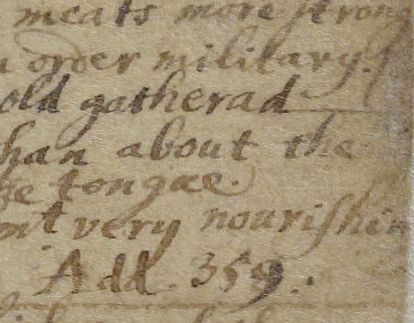 meats more stron
order military.
old gatherad
han about the
tongae.
mt very nourishin
Add. 359.